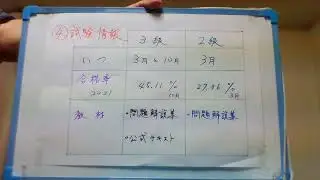 試験情報
3級 2級
いつ 3月と10月 3月
合格率 2021 45.11% 10月 27.86% 3月
教材 •問題解説集 •問題解説集
•公式テキスト